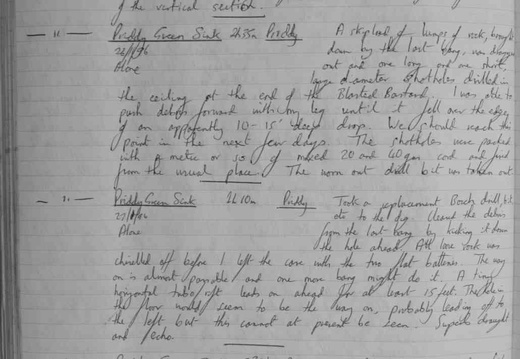 of the vertical section.
— " — Priddy Green Sink 2h35m Priddy A skipload of lumps of rock, brought
26/1/96 down by the last bang, was dragged
Alone out and one long and one short
large diameter shotholes drilled in
the ceiling at the end of the Blasted Bastard. I was able to
push debris forward with my leg until it fell over the edge
of an apparently 10-15' deep drop. We should reach this
point in the next few days. The shotholes were packed
with a metre or so of mixed 20 and 40 gm cord and fired
from the usual place. The worn out drill bit was taken out.
— " — Priddy Green Sink 1h10m Priddy Took a replacement Bosch drill bit
Alone etc to the dig. Cleared the debris
from the last bang by kicking it down
the hole ahead. All loose rock was
chiselled off before I left the cave with the two flat batteries. The way
on is almost passable and one more bang might do it. A tiny
horizontal tube leads on ahead for at least 15 feet. The hole in
the floor would seem to be the way on, probably leading off to
the left but this cannot at present be seen. Superb draught
and echo.